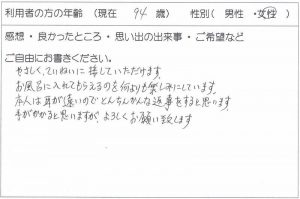 利用者の方の年齢(現在 94 歳) 性別(男性・女性)
感想・良かったところ・思い出の出来事・ご希望など
ご自由にお書きください。
やさしく、ていねいに接していただけます。
お風呂に入れてもらえるのを何よりも楽しみにしています。
本人は耳が遠いのでとんちんかんな返事をすると思います
手がかかると思いますが、よろしくお願い致します